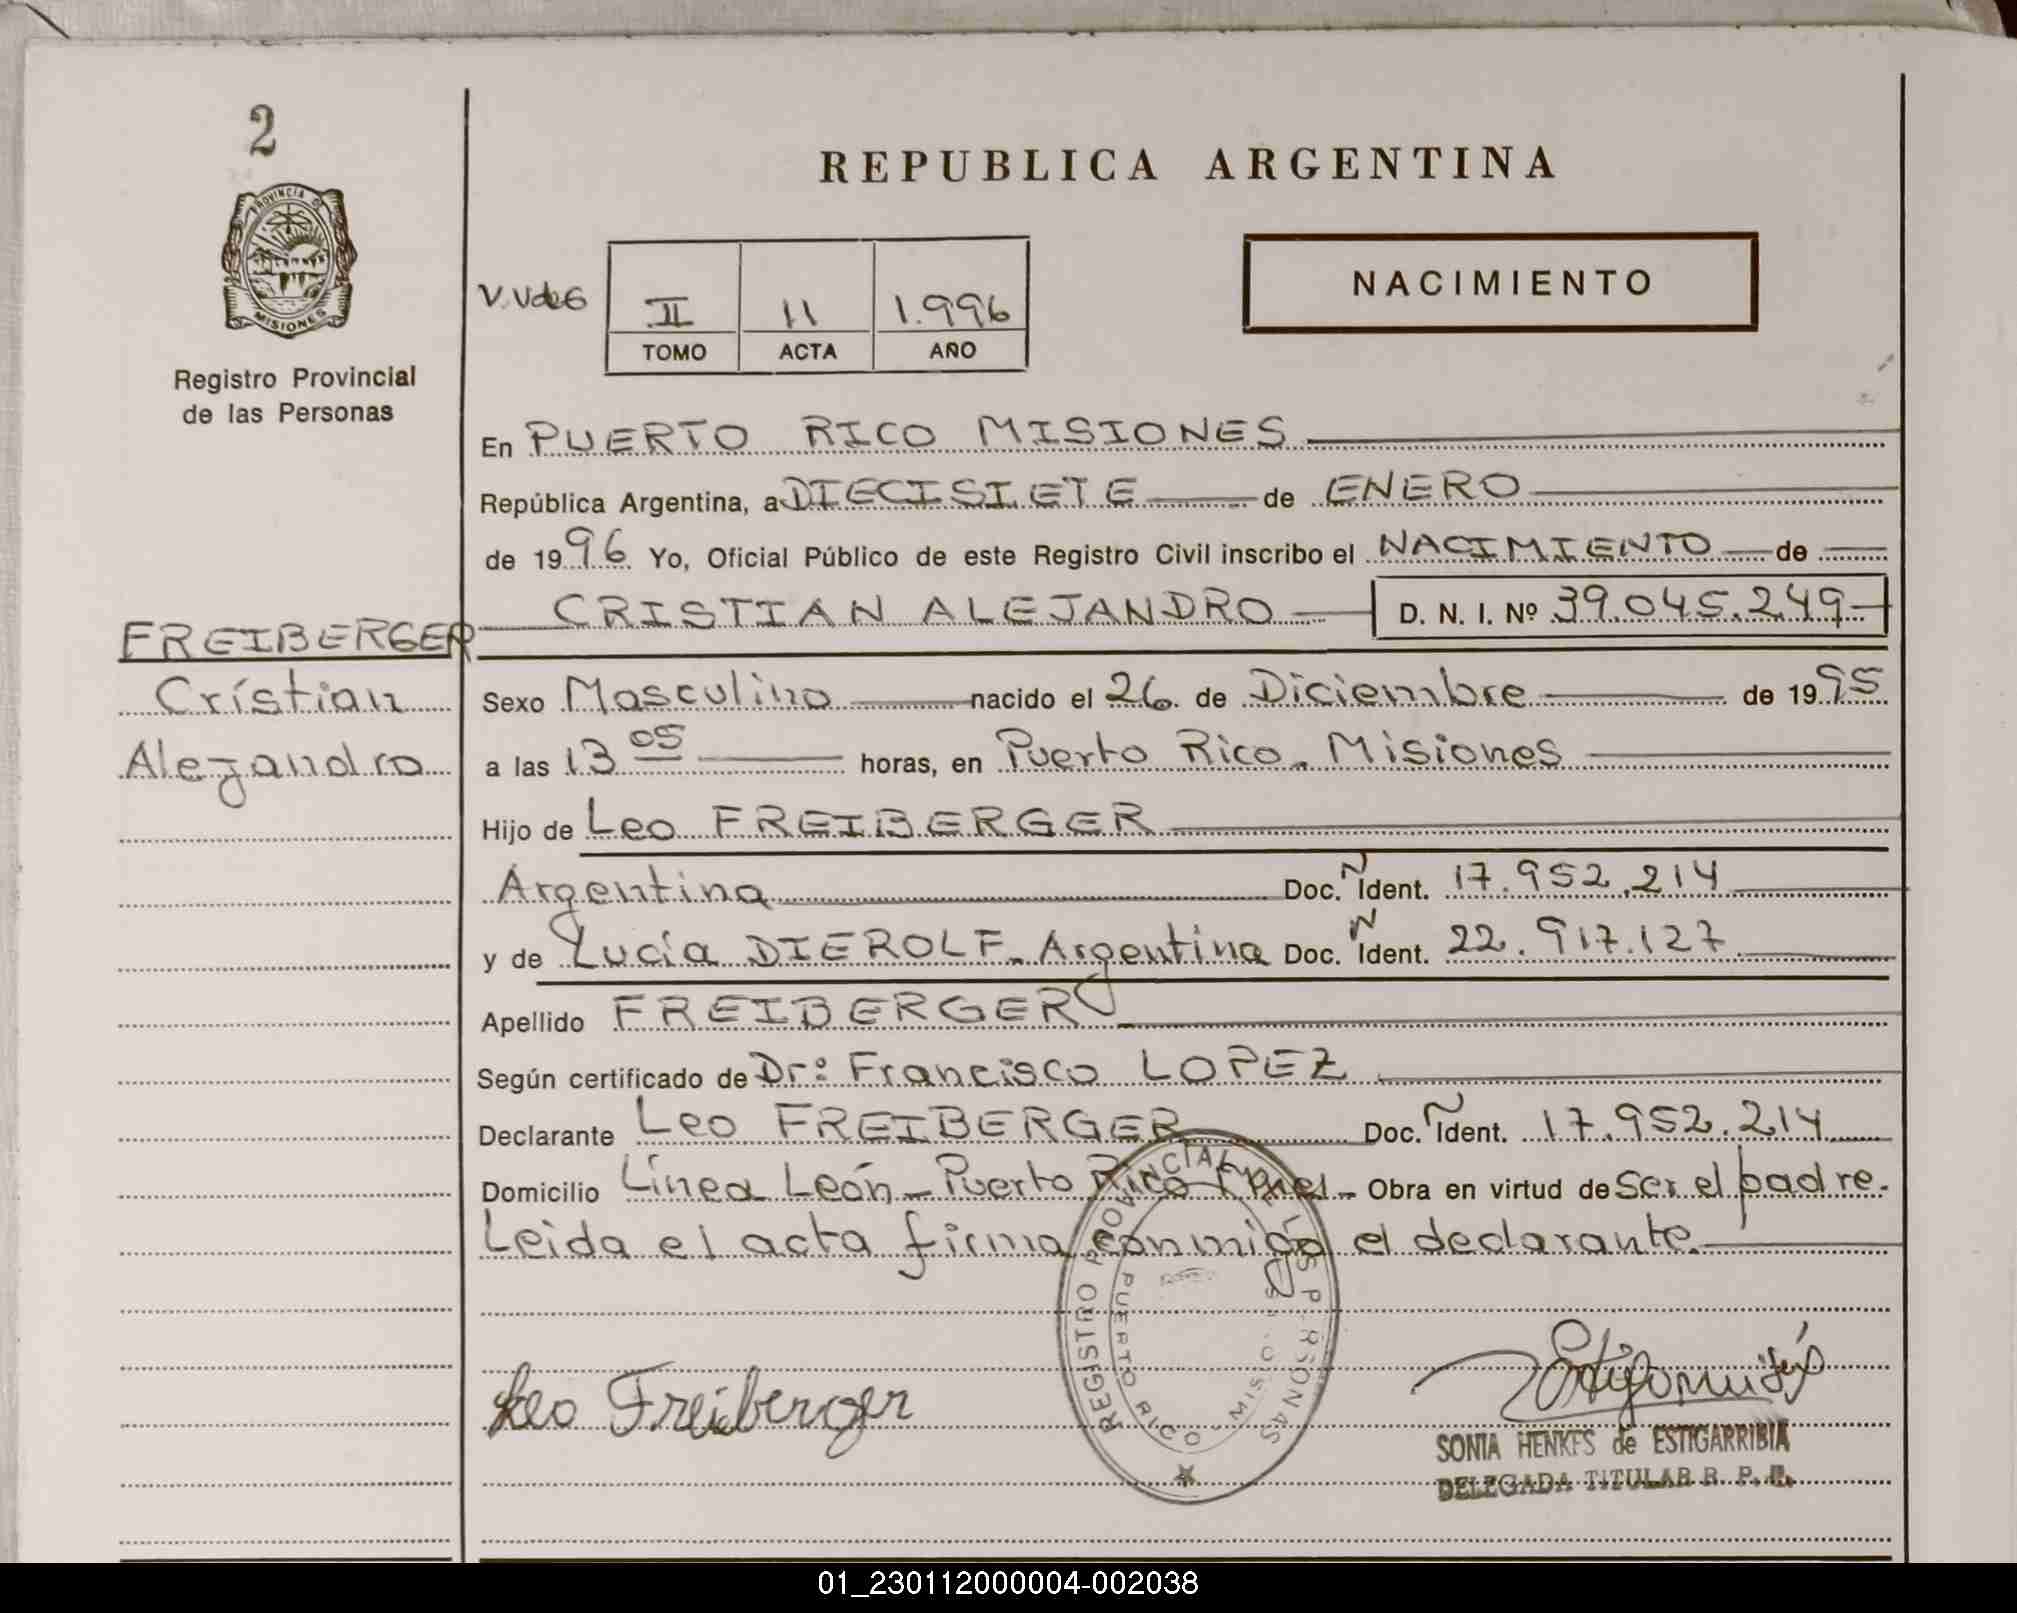 2
PROVINCIA DE
MISIONES
Registro Provincial
de las Personas
REPUBLICA ARGENTINA
V.Vde6
II 11 1.996
TOMO ACTA AÑO
NACIMIENTO
En PUERTO RICO MISIONES
República Argentina, a DIECISIETE de ENERO
de 1996 Yo, Oficial Público de este Registro Civil inscribo el NACIMIENTO de
CRISTIAN ALEJANDRO D. N. I. Nº 39.045.249
FREIBERGER
Cristian
Alejandro
Sexo Masculino nacido el 26 de Diciembre de 1995
a las 13 05 horas, en Puerto Rico. Misiones
Hijo de Leo FREIBERGER
Argentina Doc. Ñ Ident. 17.952.214
y de Lucía DIEROLF. Argentina Doc. Ñ Ident. 22.917.127
Apellido FREIBERGER
Según certificado de Dr: Francisco LOPEZ
Declarante Leo FREIBERGER Doc. Ñ Ident. 17.952.214
Domicilio Línea León - Puerto Rico - Obra en virtud de ser el padre.
Leida el acta firma conmigo el declarante.
REGISTRO PROVINCIAL DE LAS PERSONAS
PUERTO RICO MISIONES
Leo Freiberger
SONIA HENKES de ESTIGARRIBIA
DELEGADA TITULAR R. P. P.
01_230112000004-002038